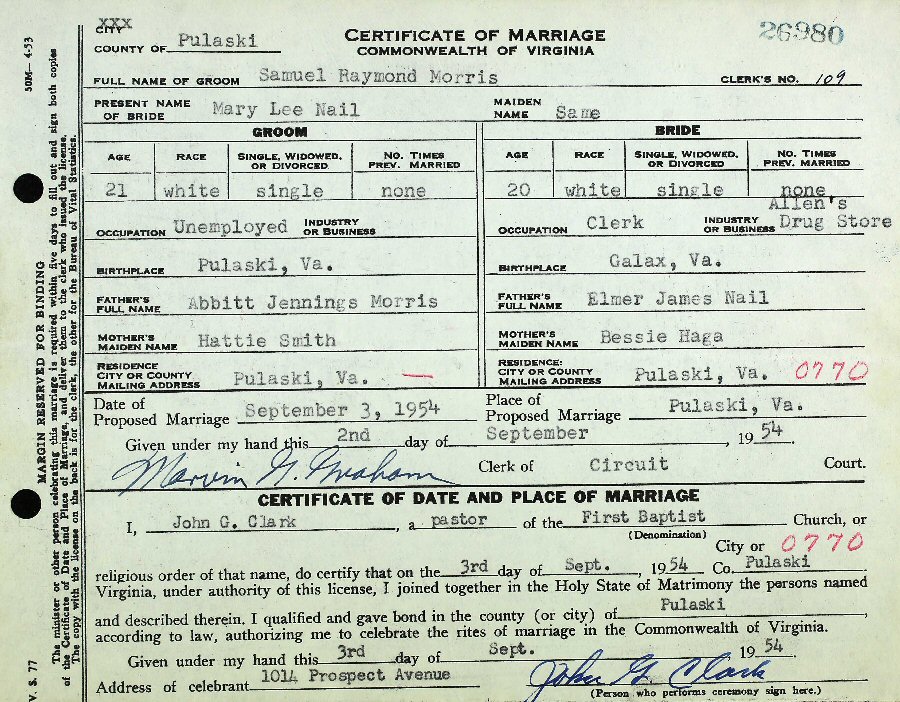 XXX
CITY
COUNTY OF Pulaski
CERTIFICATE OF MARRIAGE
COMMONWEALTH OF VIRGINIA
26980
FULL NAME OF GROOM Samuel Raymond Morris CLERK'S NO. 109
PRESENT NAME OF BRIDE Mary Lee Nail MAIDEN NAME Same
GROOM BRIDE
AGE RACE SINGLE, WIDOWED, OR DIVORCED NO. TIMES PREV. MARRIED AGE RACE SINGLE, WIDOWED, OR DIVORCED NO. TIMES PREV. MARRIED
21 white single none 20 white single none
OCCUPATION Unemployed INDUSTRY OR BUSINESS OCCUPATION Clerk INDUSTRY OR BUSINESS Allen's Drug Store
BIRTHPLACE Pulaski, Va. BIRTHPLACE Galax, Va.
FATHER'S FULL NAME Abbitt Jennings Morris FATHER'S FULL NAME Elmer James Nail
MOTHER'S MAIDEN NAME Hattie Smith MOTHER'S MAIDEN NAME Bessie Haga
RESIDENCE CITY OR COUNTY MAILING ADDRESS Pulaski, Va. — RESIDENCE: CITY OR COUNTY MAILING ADDRESS Pulaski, Va. 0770
Date of Proposed Marriage September 3, 1954 Place of Proposed Marriage Pulaski, Va.
Given under my hand this 2nd day of September, 1954.
Marvin G. Graham Clerk of Circuit Court.
CERTIFICATE OF DATE AND PLACE OF MARRIAGE
I, John G. Clark, a pastor of the First Baptist Church, or
(Denomination)
City or 0770
religious order of that name, do certify that on the 3rd day of Sept., 1954 Co. Pulaski
Virginia, under authority of this license, I joined together in the Holy State of Matrimony the persons named
and described therein. I qualified and gave bond in the county (or city) of Pulaski
according to law, authorizing me to celebrate the rites of marriage in the Commonwealth of Virginia.
Given under my hand this 3rd day of Sept. 1954.
Address of celebrant 1014 Prospect Avenue John G. Clark
(Person who performs ceremony sign here.)
V. S. 77 MARGIN RESERVED FOR BINDING 50M—4-53
The minister or other person celebrating this marriage is required within five days to fill out and sign both copies
of the Certificate of Date and Place of Marriage, and deliver them to the clerk who issued the license.
The copy with the license on the back is for the clerk, the other for the Bureau of Vital Statistics.